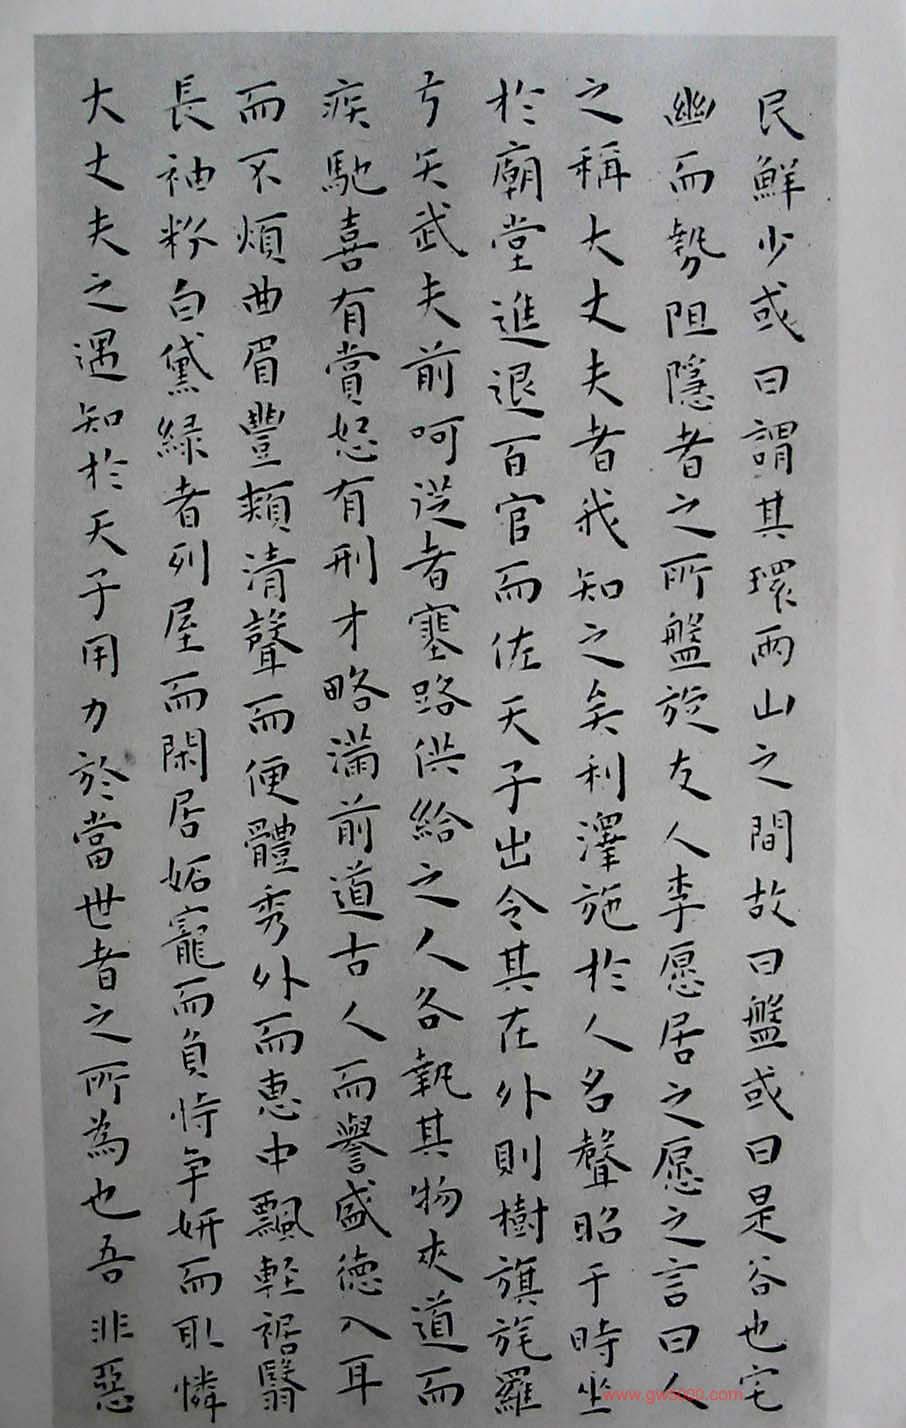 民鮮少或曰謂其環兩山之間故曰盤或曰是谷也宅
幽而勢阻隱者之所盤旋友人李愿居之愿之言曰人
之稱大丈夫者我知之矣利澤施於人名聲昭于時坐
於廟堂進退百官而佐天子出令其在外則樹旗旄羅
弓矢武夫前呵從者塞路供給之人各執其物夾道而
疾馳喜有賞怒有刑才略滿前道古人而譽盛德入耳
而不煩曲眉豐頰清聲而便體秀外而惠中飄輕裾翳
長袖粉白黛緑者列屋而閑居妬寵而負恃争妍而取憐
大丈夫之遇知於天子用力於當世者之所為也吾非惡
www.gw5000.com